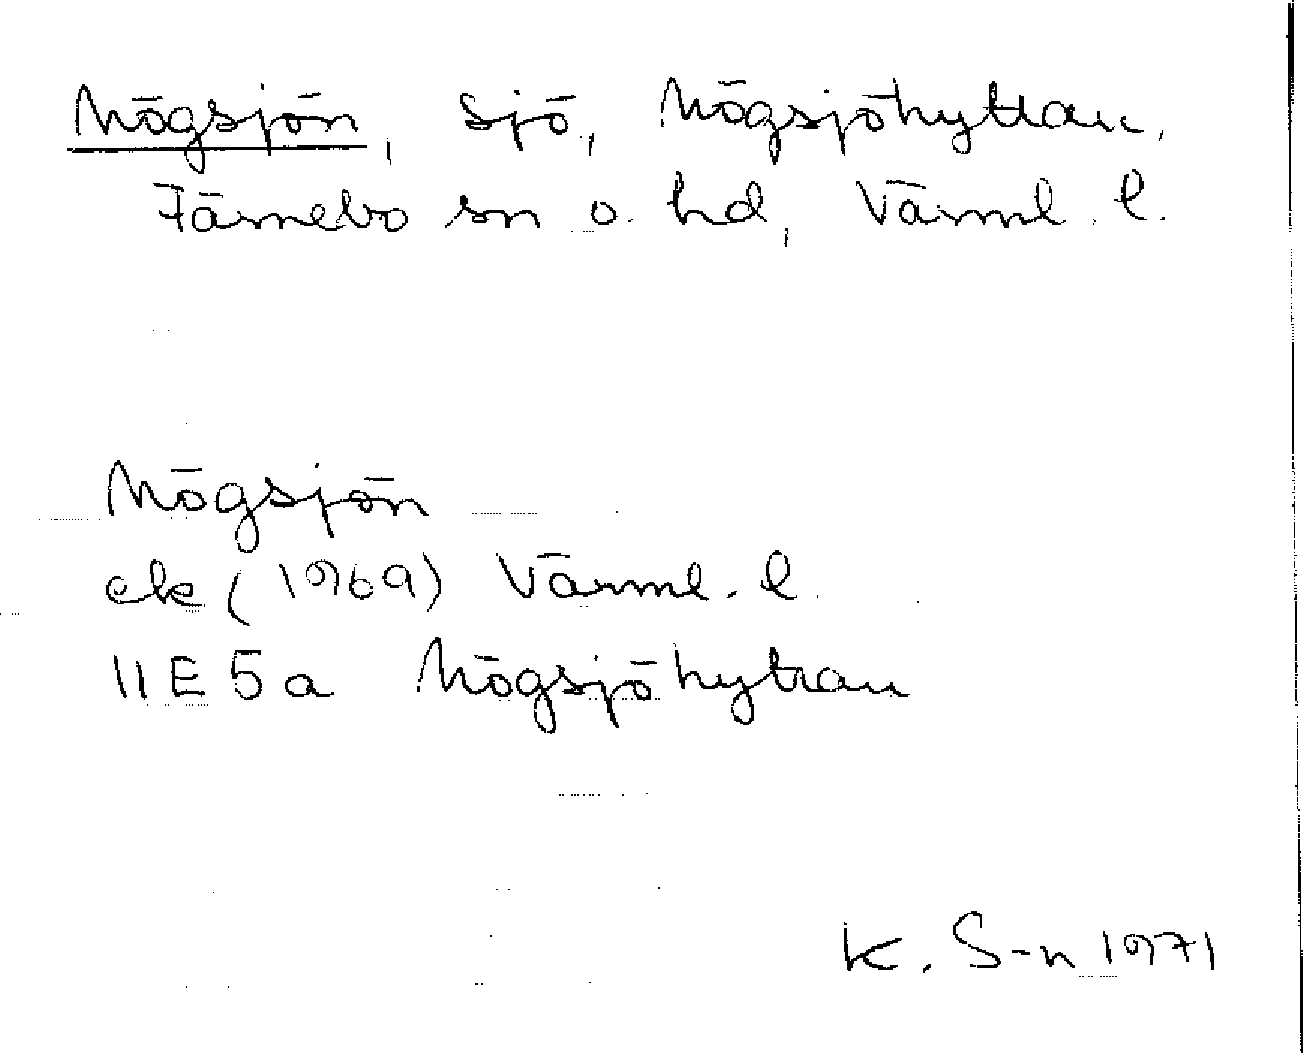 Mögsjön, sjö, Mögsjöhyttan,
Färnebo sn o. hd, Värml. l.
Mögsjön
ek (1969) Värml. l.
11E 5a Mögsjöhyttan
K. S-n 1971